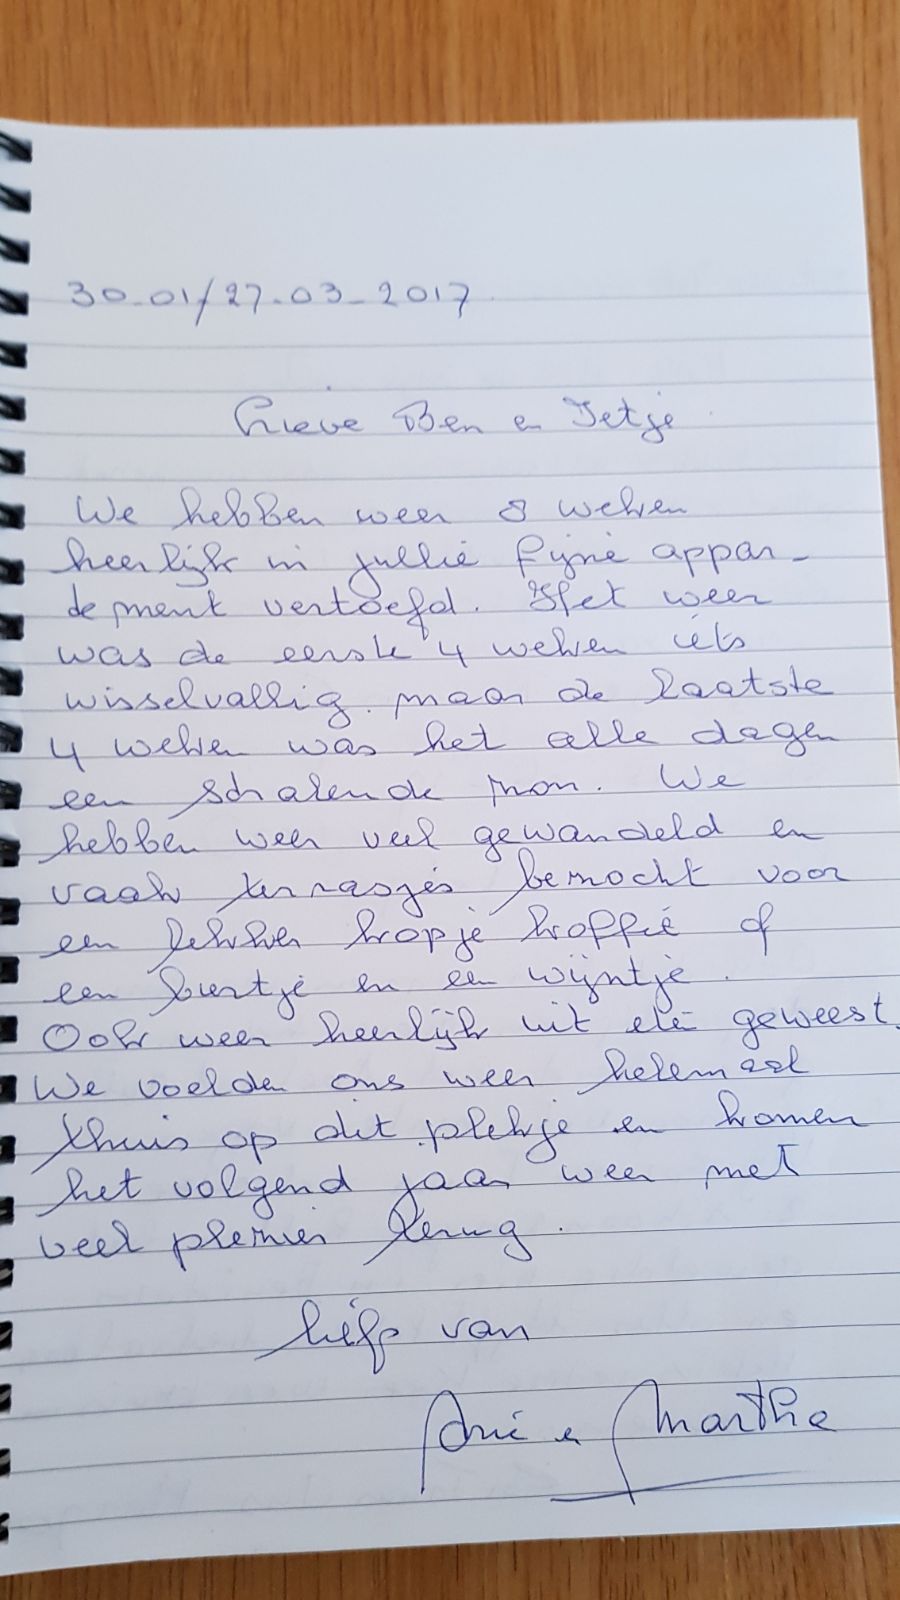 30-01/27-03-2017
Lieve Ben en Ietje
We hebben weer 8 weken
heerlijk in jullie fijne appar-
dement vertoefd. Het weer
was de eerste 4 weken iets
wisselvallig. maar de laatste
4 weken was het alle dagen
een stralende zon. We
hebben weer veel gewandeld en
vaak terrasjes bezocht voor
een lekker kopje koffie of
een biertje en een wijntje.
Ook weer heerlijk uit ete geweest.
We voelden ons weer helemaal
thuis op dit plekje en komen
het volgend jaar weer met
veel plezier terug.
liefs van
Arie en Martha